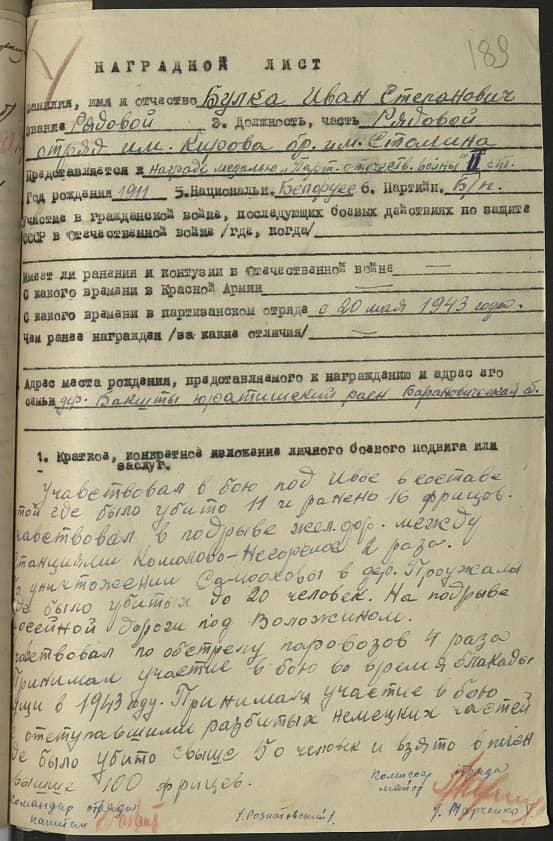 189
НАГРАДНОЙ ЛИСТ
Фамилия, имя и отчество Булка Иван Степанович
звание Рядовой 3. Должность, часть Рядовой
отряд им. Кирова бр. им. Сталина
Представляется к награде медалью "Парт. отечеств. войны" II ст.
Год рождения 1911 5. Национальн. Белорусс 6. Партийн. Б/п.
Участие в гражданской войне, последующих боевых действиях по защите
СССР в Отечественной войне /где, когда/
Имеет ли ранения и контузии в Отечественной войне —
С какого времени в Красной Армии —
С какого времени в партизанском отряде с 20 мая 1943 года.
Чем ранее награжден /за какие отличия/ —
Адрес места рождения, представляемого к награждению и адрес его
семьи дер. Бакшты юратишский раен Барановичская об.
1. Краткое, конкретное изложение личного боевого подвига или
заслуг.
Учавствовал в бою под Ивое в составе
где было убито 11 и ранено 16 фрицов.
чавствовал в подрыве жел. дор. между
станциями Коласово-Негорелое 2 раза.
уничтожении Самооховы в дер.
де было убитых до 20 человек. На подрыве
осейной дороги под Воложином.
чавствовал по обстрелу паровозов 4 раза
Принимал участие в бою во время блакады
пущи в 1943 году. Принимал участие в бою
с отступавшими разбитых немецких частей
де было убито свыше 50 человек и взято в плен
выше 100 фрицев.
Командир отряда
капитан
/. Рознатовский /.
Комиссар отряда
майор
/. Марченко /.